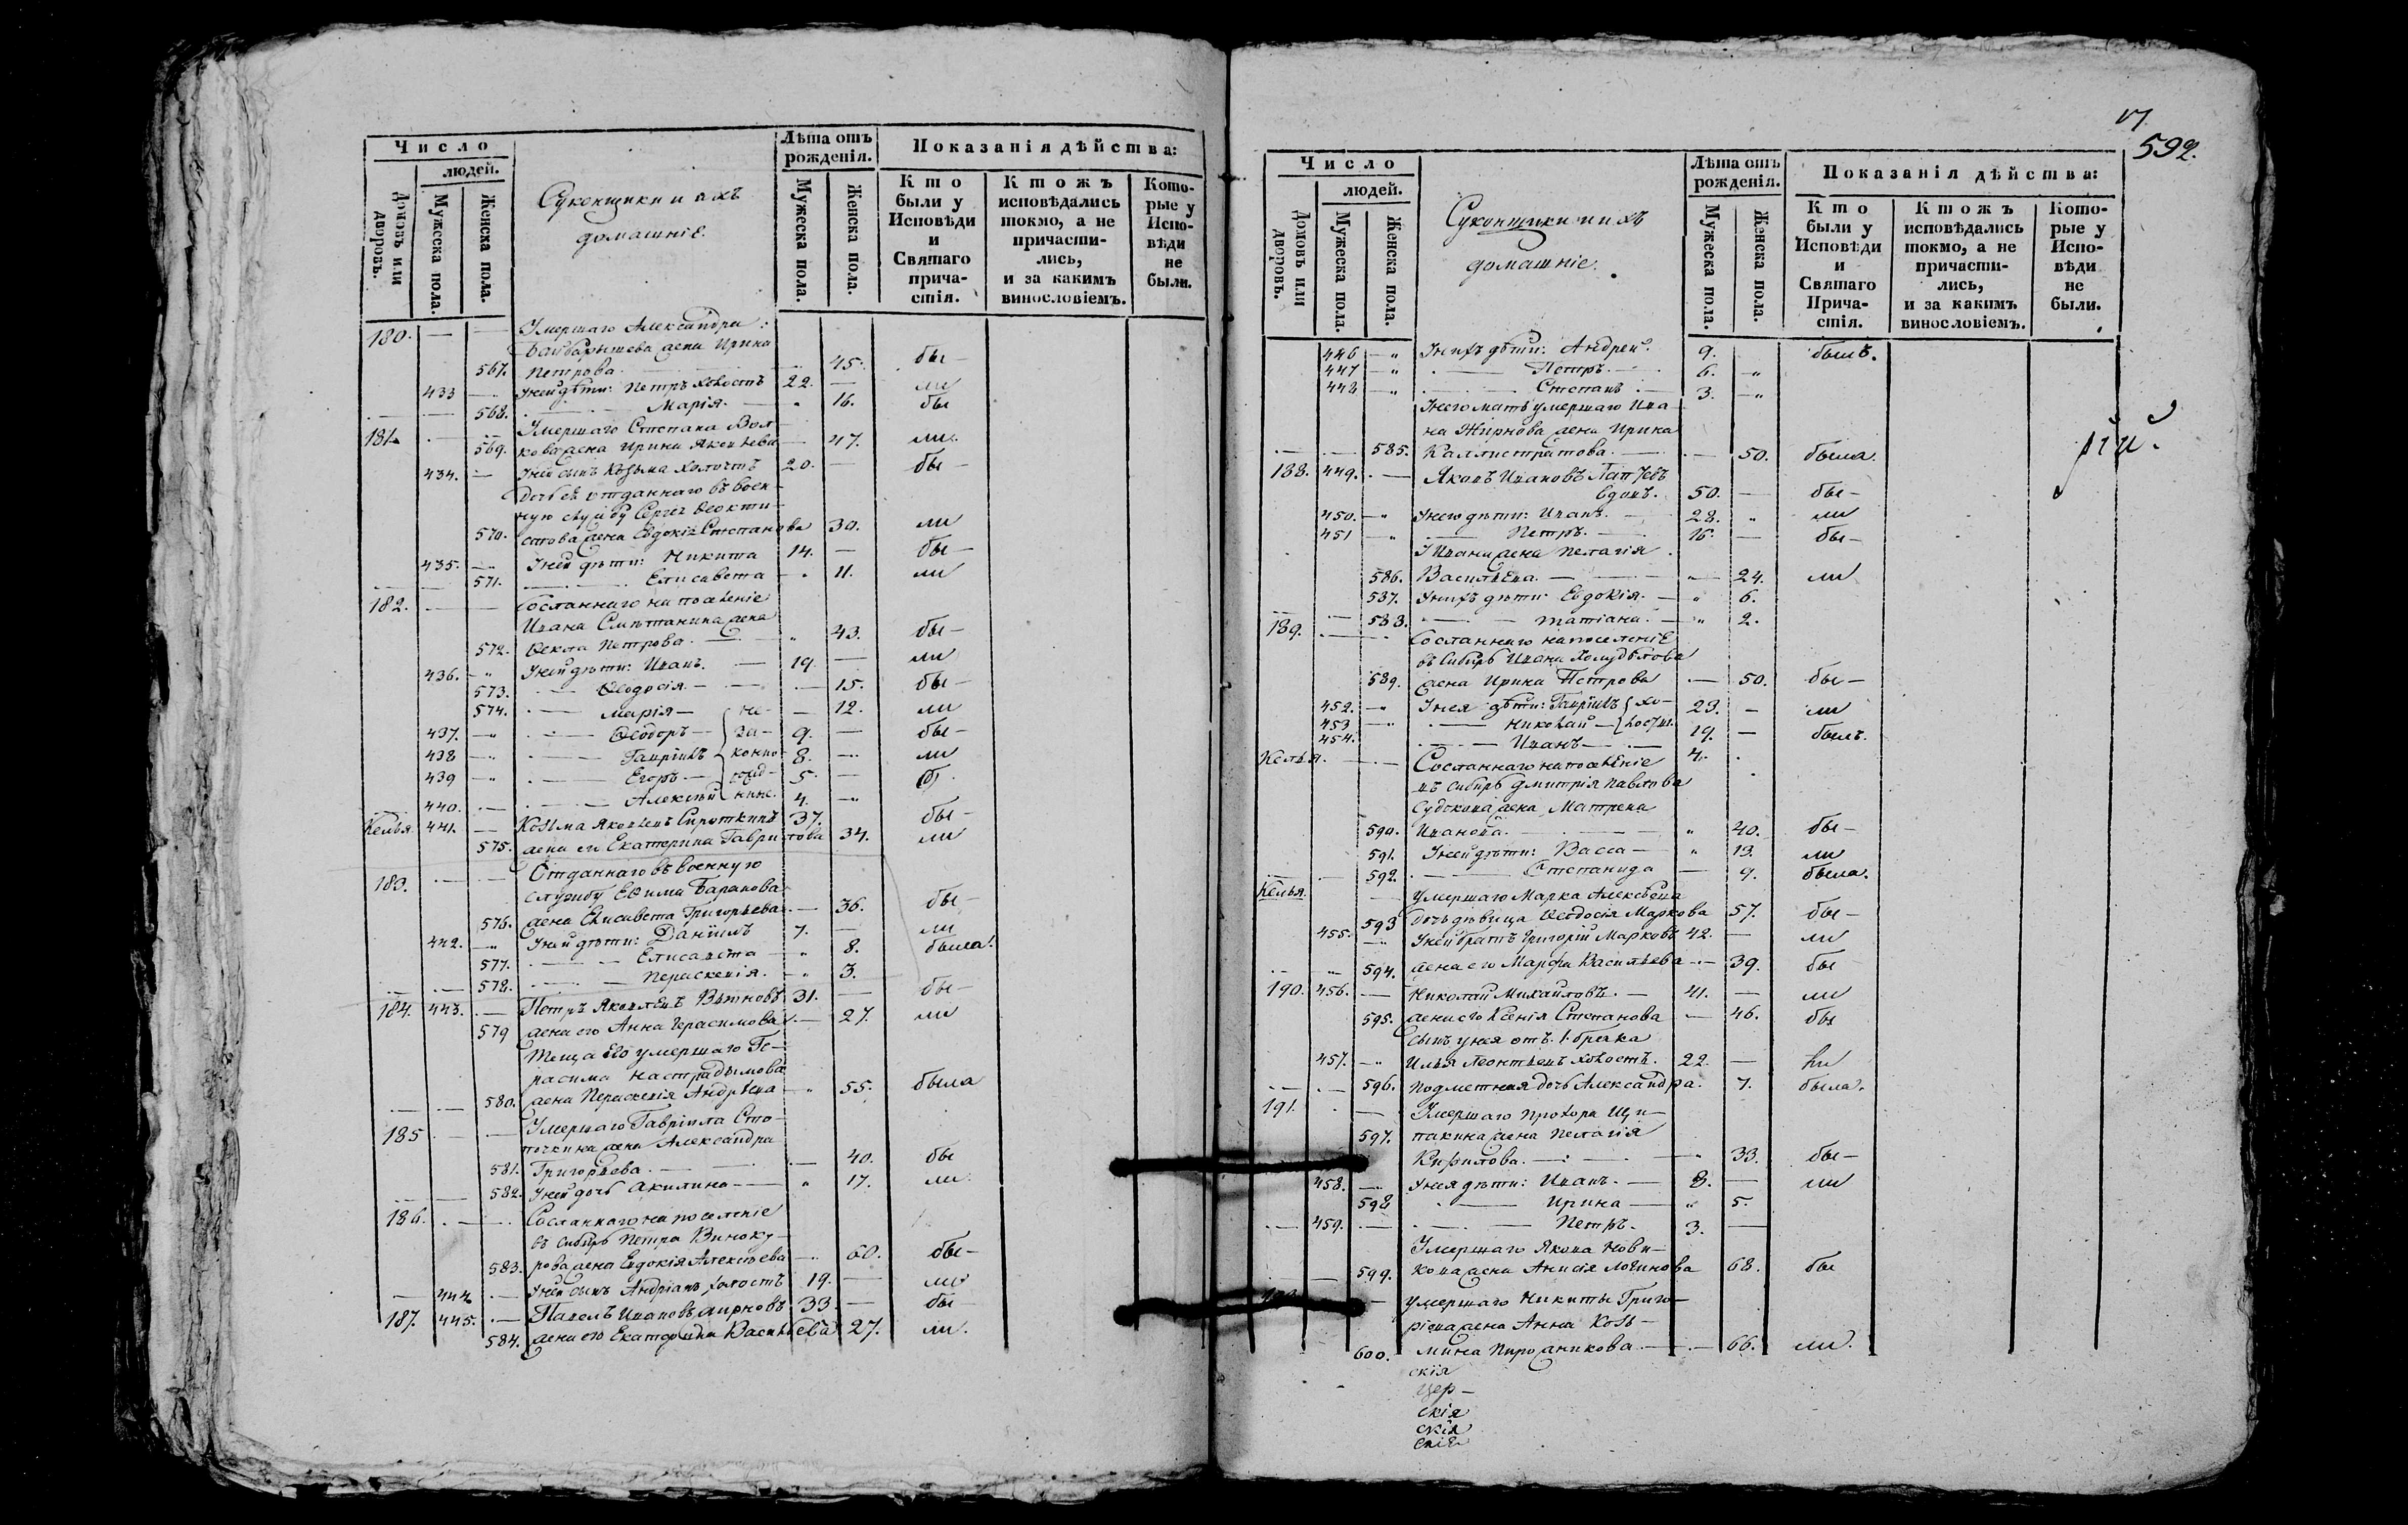 Число
людей.
Домовъ или дворовъ.
Мужеска пола.
Женска пола.
Суконщики и ихъ
домашніе.
Лѣта отъ
рожденія.
Мужеска пола.
Женска пола.
Показанія дѣйства:
Кто были у Исповѣди и Святаго причастія.
Ктожъ исповѣдались токмо, а не причастились, и за какимъ винословіемъ.
Которые у Исповѣди не были.
180. — — Умершаго Александра
жена Ирина
567. Петрова 45. бы-
433 — У ней дѣти: Петръ холостъ 22. — ли
568. Марія 16. бы
181. Умершаго Степана Вол-
569. кова жена Ирина Яковлева 47. ли
434. — У ней сынъ Козьма холостъ 20. — бы-
Дочь ея отданнаго въ воен-
ную службу Сергея Ѳеокти-
570. стова жена Евдокія Степанова 30. ли
435. У ней дѣти: Никита 14. — бы-
571. Елисавета 11. ли
182. Сосланнаго на поселеніе
Ивана Сметанина жена
572. Ѳекла Петрова 43. бы-
436. У ней дѣти: Иванъ 19. — ли
573. Ѳеодосія 15. бы-
574. Марія — 12. ли
437. Ѳеодоръ 9. — бы-
438 Гаврiилъ 8. ли
439 Егоръ 5. —
440. Алексѣй 4.
Келья 441. — Козма Яковлевъ Сироткинъ 37. бы-
575. жена его Екатерина Гаврилова 34. ли
183. Отданнаго въ военную
службу Еѳима Баранова
576. жена Елисавета Григорьева 36. бы-
442. У ней дѣти: Данiилъ 7. — ли
577. Елисавета 8. была.
578. Параскевія. 3.
184. 443. Петръ Яковлевъ 31. — бы-
579 жена его Анна Герасимова 27. ли
Теща его умершаго Ге-
расима
580. жена Параскевія Андреева 55. была
185 Умершаго Гавріила Сто-
жена Александра
581. Григорьева. 40. бы
582. У ней дочь Акилина 17. ли
186. Сосланнаго на поселеніе
въ Сибирь Петра Виноку-
583. рова жена Евдокія Алексѣева 60. бы-
444 У ней сынъ Андріанъ холостъ 19. — ли
187. 445. Павелъ Ивановъ Жирновъ 33. — бы-
584. жена его Екатерина Васильева 27. ли.
17
592.
Число
людей.
Домовъ или дворовъ.
Мужеска пола.
Женска пола.
Суконщики и ихъ
домашніе.
Лѣта отъ
рожденія.
Мужеска пола.
Женска пола.
Показанія дѣйства:
Кто были у Исповѣди и Святаго Причастія.
Ктожъ исповѣдались токмо, а не причастились, и за какимъ винословіемъ.
Которые у Исповѣди не были.
446 У нихъ дѣти: Андрей 9. былъ.
447 Петръ 6.
448 Степанъ 3.
У него мать умершаго Ива-
на Жирнова жена Ирина
585. Каллистратова. 50. была.
188. 449. Яковъ Ивановъ
вдовъ. 50. — бы-
450. У него дѣти: Иванъ 28. ли
451 Петръ 16. — бы-
У Ивана жена Пелагія
586. Васильева. 24. ли
587. У нихъ дѣти: Евдокія 6.
588. Татіана 2.
189. Сосланнаго на поселеніе
въ Сибирь Ивана
589. жена Ирина Петрова 50. бы-
452. У нея дѣти: Гаврiилъ 23. — ли
453 Николай 19. — былъ.
454. Иванъ 4.
Келья. Сосланнаго на поселеніе
въ Сибирь Дмитрія Павлова
жена Матрена
590. Иванова. 40. бы-
591. У ней дѣти: Васса 13. ли
592. Степанида 9. была.
Келья. умершаго Марка Алексѣева
593 дочь дѣвица Ѳеодосія Маркова 57. бы-
455. У ней братъ Григорій Марковъ 42. — ли
594. жена его Марѳа Васильева 39. бы
190. 456. Николай Михайловъ. 41. — ли
595. жена его Ксенія Степанова 46. бы
Сынъ у нея отъ 1. брака
457. Илья Леонтьевъ холостъ. 22. — ли
596. Подметная дочь Александра. 7. была.
191. Умершаго Прохора Щи-
597. пакина жена Пелагія
Кирилова. 33. бы-
458. У нея дѣти: Иванъ 8. — ли
598 Ирина 5.
459. Петръ 3. —
Умершаго Якова Нови-
599. кова жена Анисія Логинова 68. бы
умершаго Никиты Григо-
рьева жена Анна Козь-
600. мина 66. ли.
скія
цер-
скія
скія
скія